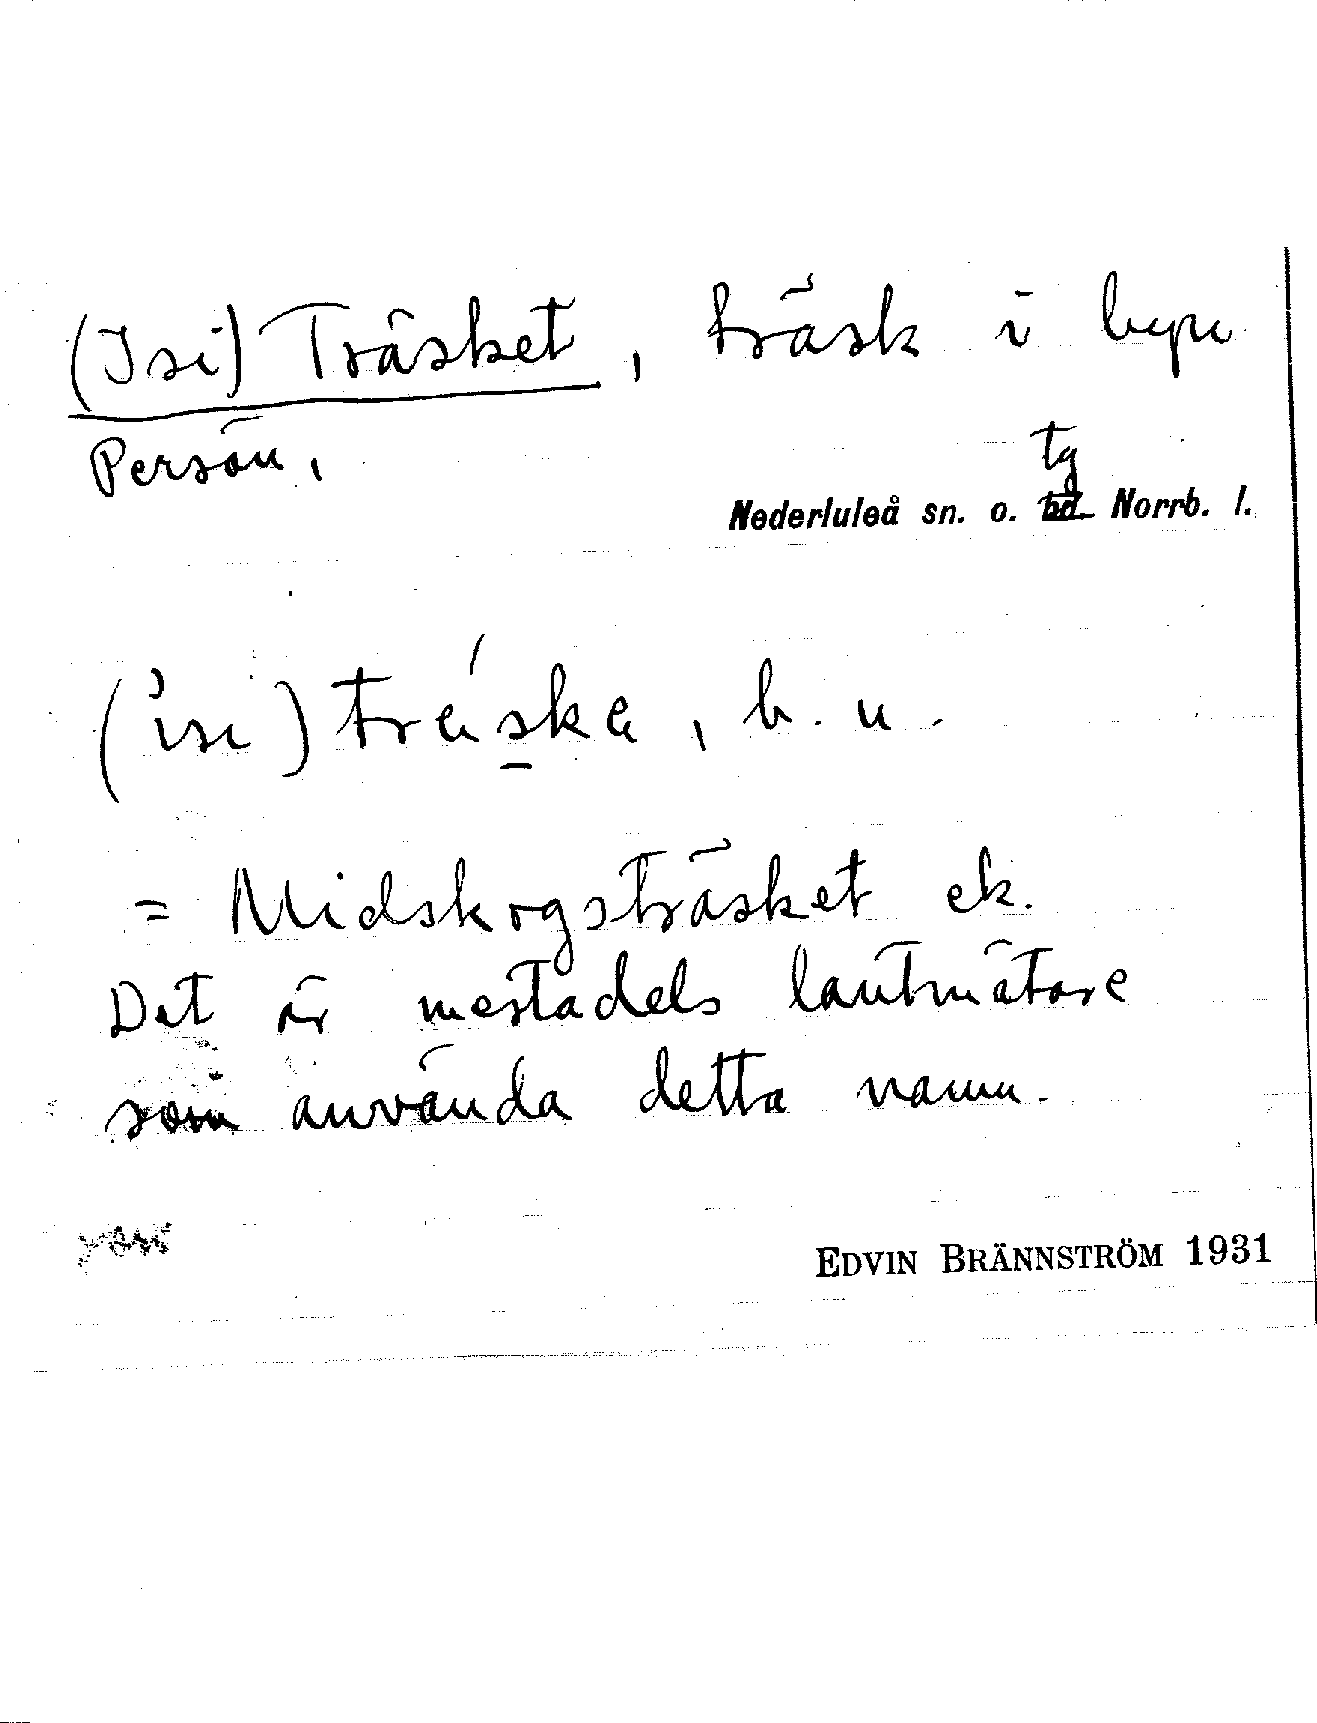 (Isi) Träsket, träsk i byn
Persön,
tg
Nederluleå sn. o. bd. Norrb. l.
(isi) träske, b. u.
= Midskogsträsket ek.
Det är mestadels lantmätare
som använda detta namn.
EDVIN BRÄNNSTRÖM 1931